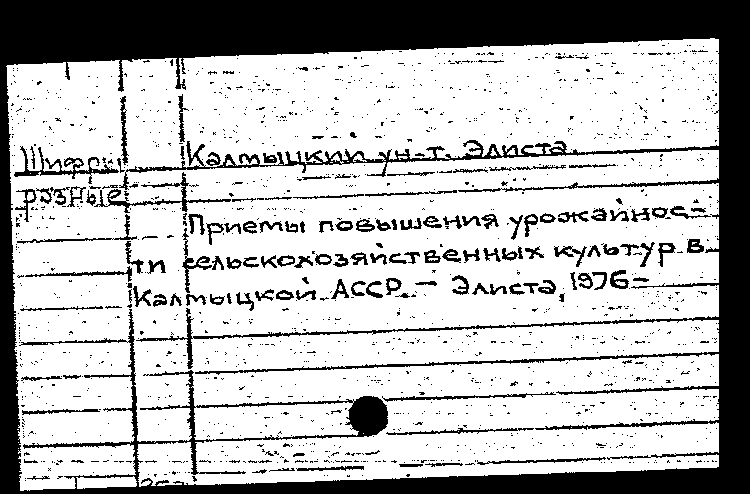 Шифры
Калмыцкий ун-т. Элиста.
разные
Приемы повышения урожайнос-
ти сельскохозяйственных культур в
Калмыцкой АССР. — Элиста, 1976-